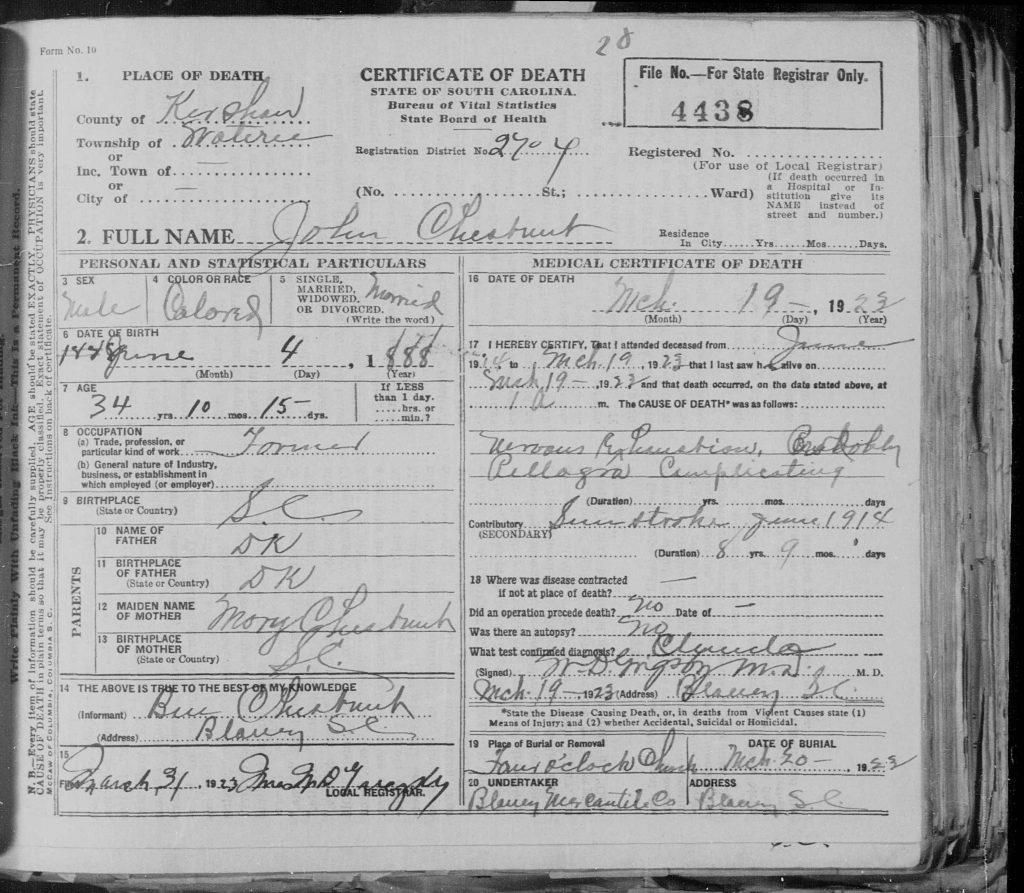 28
Form No. 10
1. PLACE OF DEATH
County of Kershaw
Township of Wateree
or
Inc. Town of —
or
City of —
CERTIFICATE OF DEATH
STATE OF SOUTH CAROLINA.
Bureau of Vital Statistics
State Board of Health
Registration District No. 2704
File No.—For State Registrar Only.
4438
Registered No.
(For use of Local Registrar)
(No. St.; Ward)
(If death occurred in
a Hospital or In-
stitution give its
NAME instead of
street and number.)
2. FULL NAME John Chesnut
Residence
In City Yrs. Mos. Days.
PERSONAL AND STATISTICAL PARTICULARS
3 SEX
Male
4 COLOR OR RACE
Colored
5 SINGLE,
MARRIED,
WIDOWED,
OR DIVORCED.
(Write the word)
Married
6 DATE OF BIRTH
June 4, 1888
(Month) (Day) (Year)
7 AGE
34 yrs. 10 mos. 15 dys.
If LESS
than 1 day.
hrs. or
min.?
8 OCCUPATION
(a) Trade, profession, or
particular kind of work Farmer
(b) General nature of Industry,
business, or establishment in
which employed (or employer)
9 BIRTHPLACE
(State or Country) S.C.
PARENTS
10 NAME OF
FATHER DK
11 BIRTHPLACE
OF FATHER
(State or Country) DK
12 MAIDEN NAME
OF MOTHER Mary Chesnut
13 BIRTHPLACE
OF MOTHER
(State or Country) S.C.
14 THE ABOVE IS TRUE TO THE BEST OF MY KNOWLEDGE
(Informant) Ben Chesnut
(Address) Blaney S.C.
15
March 31, 1923 Mrs
LOCAL REGISTRAR.
MEDICAL CERTIFICATE OF DEATH
16 DATE OF DEATH
Mch. 19 —, 1923
(Month) (Day) (Year)
17 I HEREBY CERTIFY, That I attended deceased from June
1914 to Mch 19, 1923 that I last saw h alive on
Mch 19 —, 1923 and that death occurred, on the date stated above, at
1 a m. The CAUSE OF DEATH* was as follows:
Nervous Exhaustion, Probably
Pellagra Complicating
(Duration) yrs. mos. days
Contributory Sun stroke June 1914
(SECONDARY)
(Duration) 8 yrs. 9 mos. days
18 Where was disease contracted
if not at place of death? —
Did an operation precede death? No Date of —
Was there an autopsy? No
What test confirmed diagnosis?
(Signed) W.D. M.D. M. D.
Mch. 19 — 1923 (Address) Blaney S.C.
*State the Disease Causing Death, or, in deaths from Violent Causes state (1)
Means of Injury; and (2) whether Accidental, Suicidal or Homicidal.
19 Place of Burial or Removal
Four o'clock Church
DATE OF BURIAL
Mch. 20 — 1923
20 UNDERTAKER
Blaney Mercantile Co
ADDRESS
Blaney S.C.
Write Plainly With Unfading Black Ink—This is a Permanent Record.
N. B.—Every item of information should be carefully supplied. AGE should be stated EXACTLY. PHYSICIANS should state
CAUSE OF DEATH in plain terms so that it may be properly classified. Exact statement of OCCUPATION is very important.
See instructions on back of certificate.
McCAW OF COLUMBIA, COLUMBIA S. C.